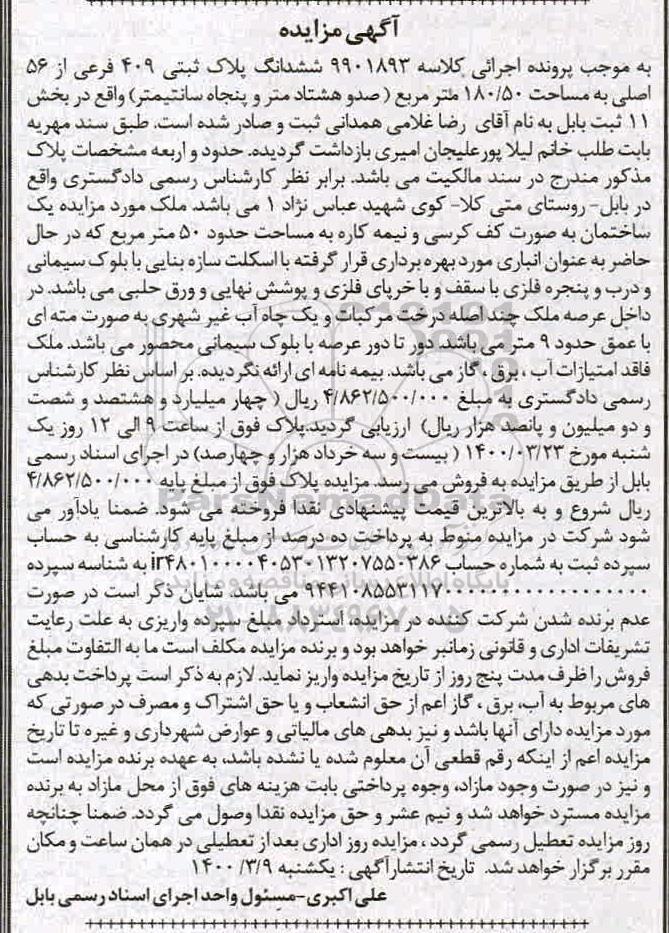 آگهی مزایده
به موجب پرونده اجرائی کلاسه ۹۹۰۱۸۹۳ ششدانگ پلاک ثبتی ۴۰۹ فرعی از ۵۶
اصلی به مساحت ۱۸۰/۵۰ متر مربع ( صدو هشتاد متر و پنجاه سانتیمتر) واقع در بخش
۱۱ ثبت بابل به نام آقای رضا غلامی همدانی ثبت و صادر شده است. طبق سند مهریه
بابت طلب خانم لیلا پورعلیجان امیری بازداشت گردیده. حدود و اربعه مشخصات پلاک
مذکور مندرج در سند مالکیت می باشد. برابر نظر کارشناس رسمی دادگستری واقع
در بابل- روستای متی کلا- کوی شهید عباس نژاد ۱ می باشد. ملک مورد مزایده یک
ساختمان به صورت کف کرسی و نیمه کاره به مساحت حدود ۵۰ متر مربع که در حال
حاضر به عنوان انباری مورد بهره برداری قرار گرفته با اسکلت سازه بنایی با بلوک سیمانی
و درب و پنجره فلزی با سقف و با خرپای فلزی و پوشش نهایی و ورق حلبی می باشد. در
داخل عرصه ملک چند اصله درخت مرکبات و یک چاه آب غیر شهری به صورت مته ای
با عمق حدود ۹ متر می باشد. دور تا دور عرصه با بلوک سیمانی محصور می باشد. ملک
فاقد امتیازات آب ، برق ، گاز می باشد. بیمه نامه ای ارائه نگردیده. بر اساس نظر کارشناس
رسمی دادگستری به مبلغ ۴/۸۶۲/۵۰۰/۰۰۰ ریال ( چهار میلیارد و هشتصد و شصت
و دو میلیون و پانصد هزار ریال) ارزیابی گردید.پلاک فوق از ساعت ۹ الی ۱۲ روز یک
شنبه مورخ ۱۴۰۰/۰۳/۲۳ ( بیست و سه خرداد هزار و چهارصد) در اجرای اسناد رسمی
بابل از طریق مزایده به فروش می رسد. مزایده پلاک فوق از مبلغ پایه ۴/۸۶۲/۵۰۰/۰۰۰
ریال شروع و به بالاترین قیمت پیشنهادی نقدا فروخته می شود. ضمنا یادآور می
شود شرکت در مزایده منوط به پرداخت ده درصد از مبلغ پایه کارشناسی به حساب
سپرده ثبت به شماره حساب به شناسه سپرده
می باشد. شایان ذکر است در صورت
عدم برنده شدن شرکت کننده در مزایده، استرداد مبلغ سپرده واریزی به علت رعایت
تشریفات اداری و قانونی زمانبر خواهد بود و برنده مزایده مکلف است ما به التفاوت مبلغ
فروش را ظرف مدت پنج روز از تاریخ مزایده واریز نماید. لازم به ذکر است پرداخت بدهی
های مربوط به آب، برق ، گاز اعم از حق انشعاب و یا حق اشتراک و مصرف در صورتی که
مورد مزایده دارای آنها باشد و نیز بدهی های مالیاتی و عوارض شهرداری و غیره تا تاریخ
مزایده اعم از اینکه رقم قطعی آن معلوم شده یا نشده باشد، به عهده برنده مزایده است
و نیز در صورت وجود مازاد، وجوه پرداختی بابت هزینه های فوق از محل مازاد به برنده
مزایده مسترد خواهد شد و نیم عشر و حق مزایده نقدا وصول می گردد. ضمنا چنانچه
روز مزایده تعطیل رسمی گردد ، مزایده روز اداری بعد از تعطیلی در همان ساعت و مکان
مقرر برگزار خواهد شد. تاریخ انتشارآگهی : یکشنبه ۱۴۰۰ /۳/۹
علی اکبری-مسئول واحد اجرای اسناد رسمی بابل